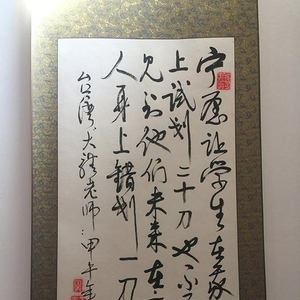 宁愿让学生在我
上试划二十刀也不
见到他们未来在
人身上错划一刀
台湾大体老师:甲午年